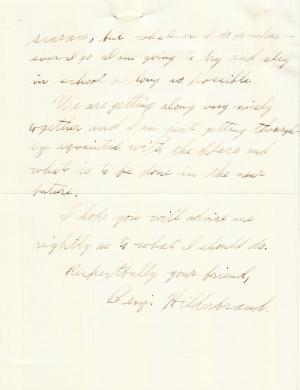 scarce, but whatever I do or wher-
ever I go I am going to try and stay
in school as long as possible.
We are getting along very nicely
together and I am just getting thorough-
ly aquainted with the place and
what is to be done in the near
future.
I hope you will advise me
rightly as to what I should do.
Respectfully your friend,
Benj. Hilderbrand.